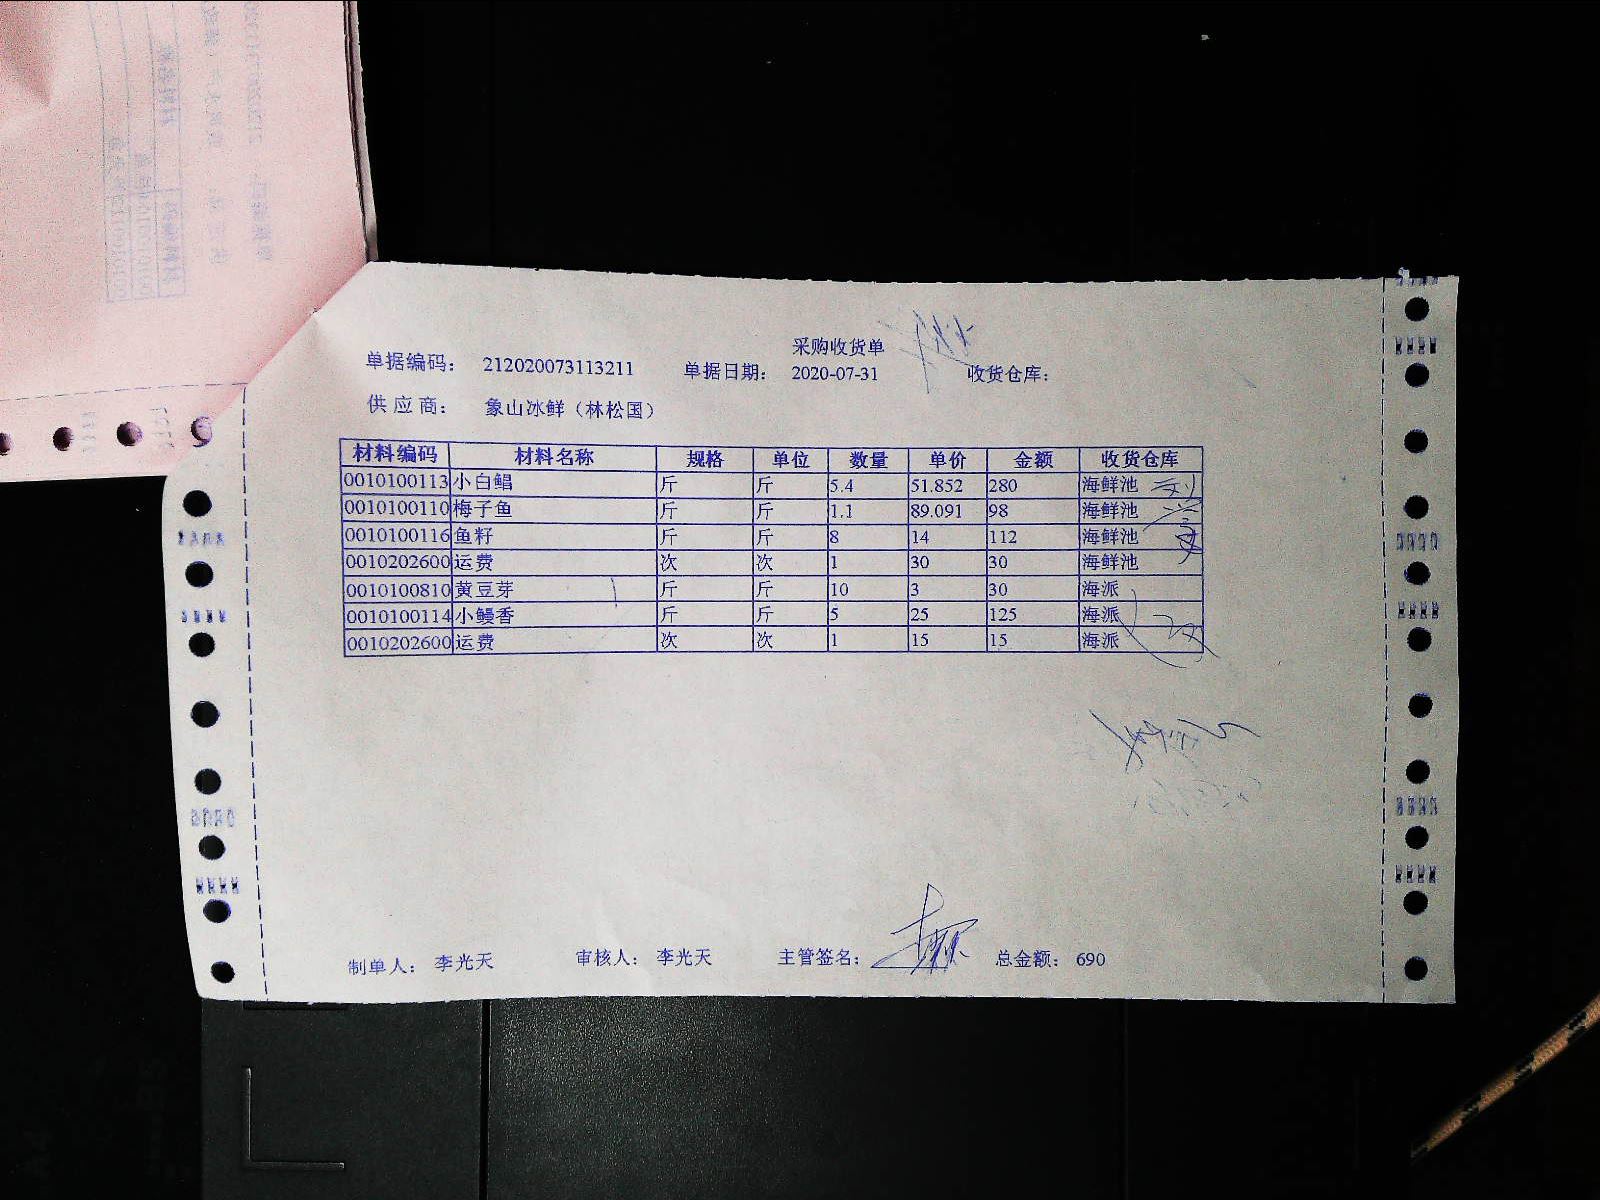 采购收货单
单据编码： 212020073113211 单据日期： 2020-07-31 收货仓库：
供应商： 象山冰鲜（林松国）
材料编码 材料名称 规格 单位 数量 单价 金额 收货仓库
0010100113 小白鲳 斤 斤 5.4 51.852 280 海鲜池
0010100110 梅子鱼 斤 斤 1.1 89.091 98 海鲜池
0010100116 鱼籽 斤 斤 8 14 112 海鲜池
0010202600 运费 次 次 1 30 30 海鲜池
0010100810 黄豆芽 斤 斤 10 3 30 海派
0010100114 小鳗香 斤 斤 5 25 125 海派
0010202600 运费 次 次 1 15 15 海派
制单人： 李光天 审核人： 李光天 主管签名： 总金额： 690